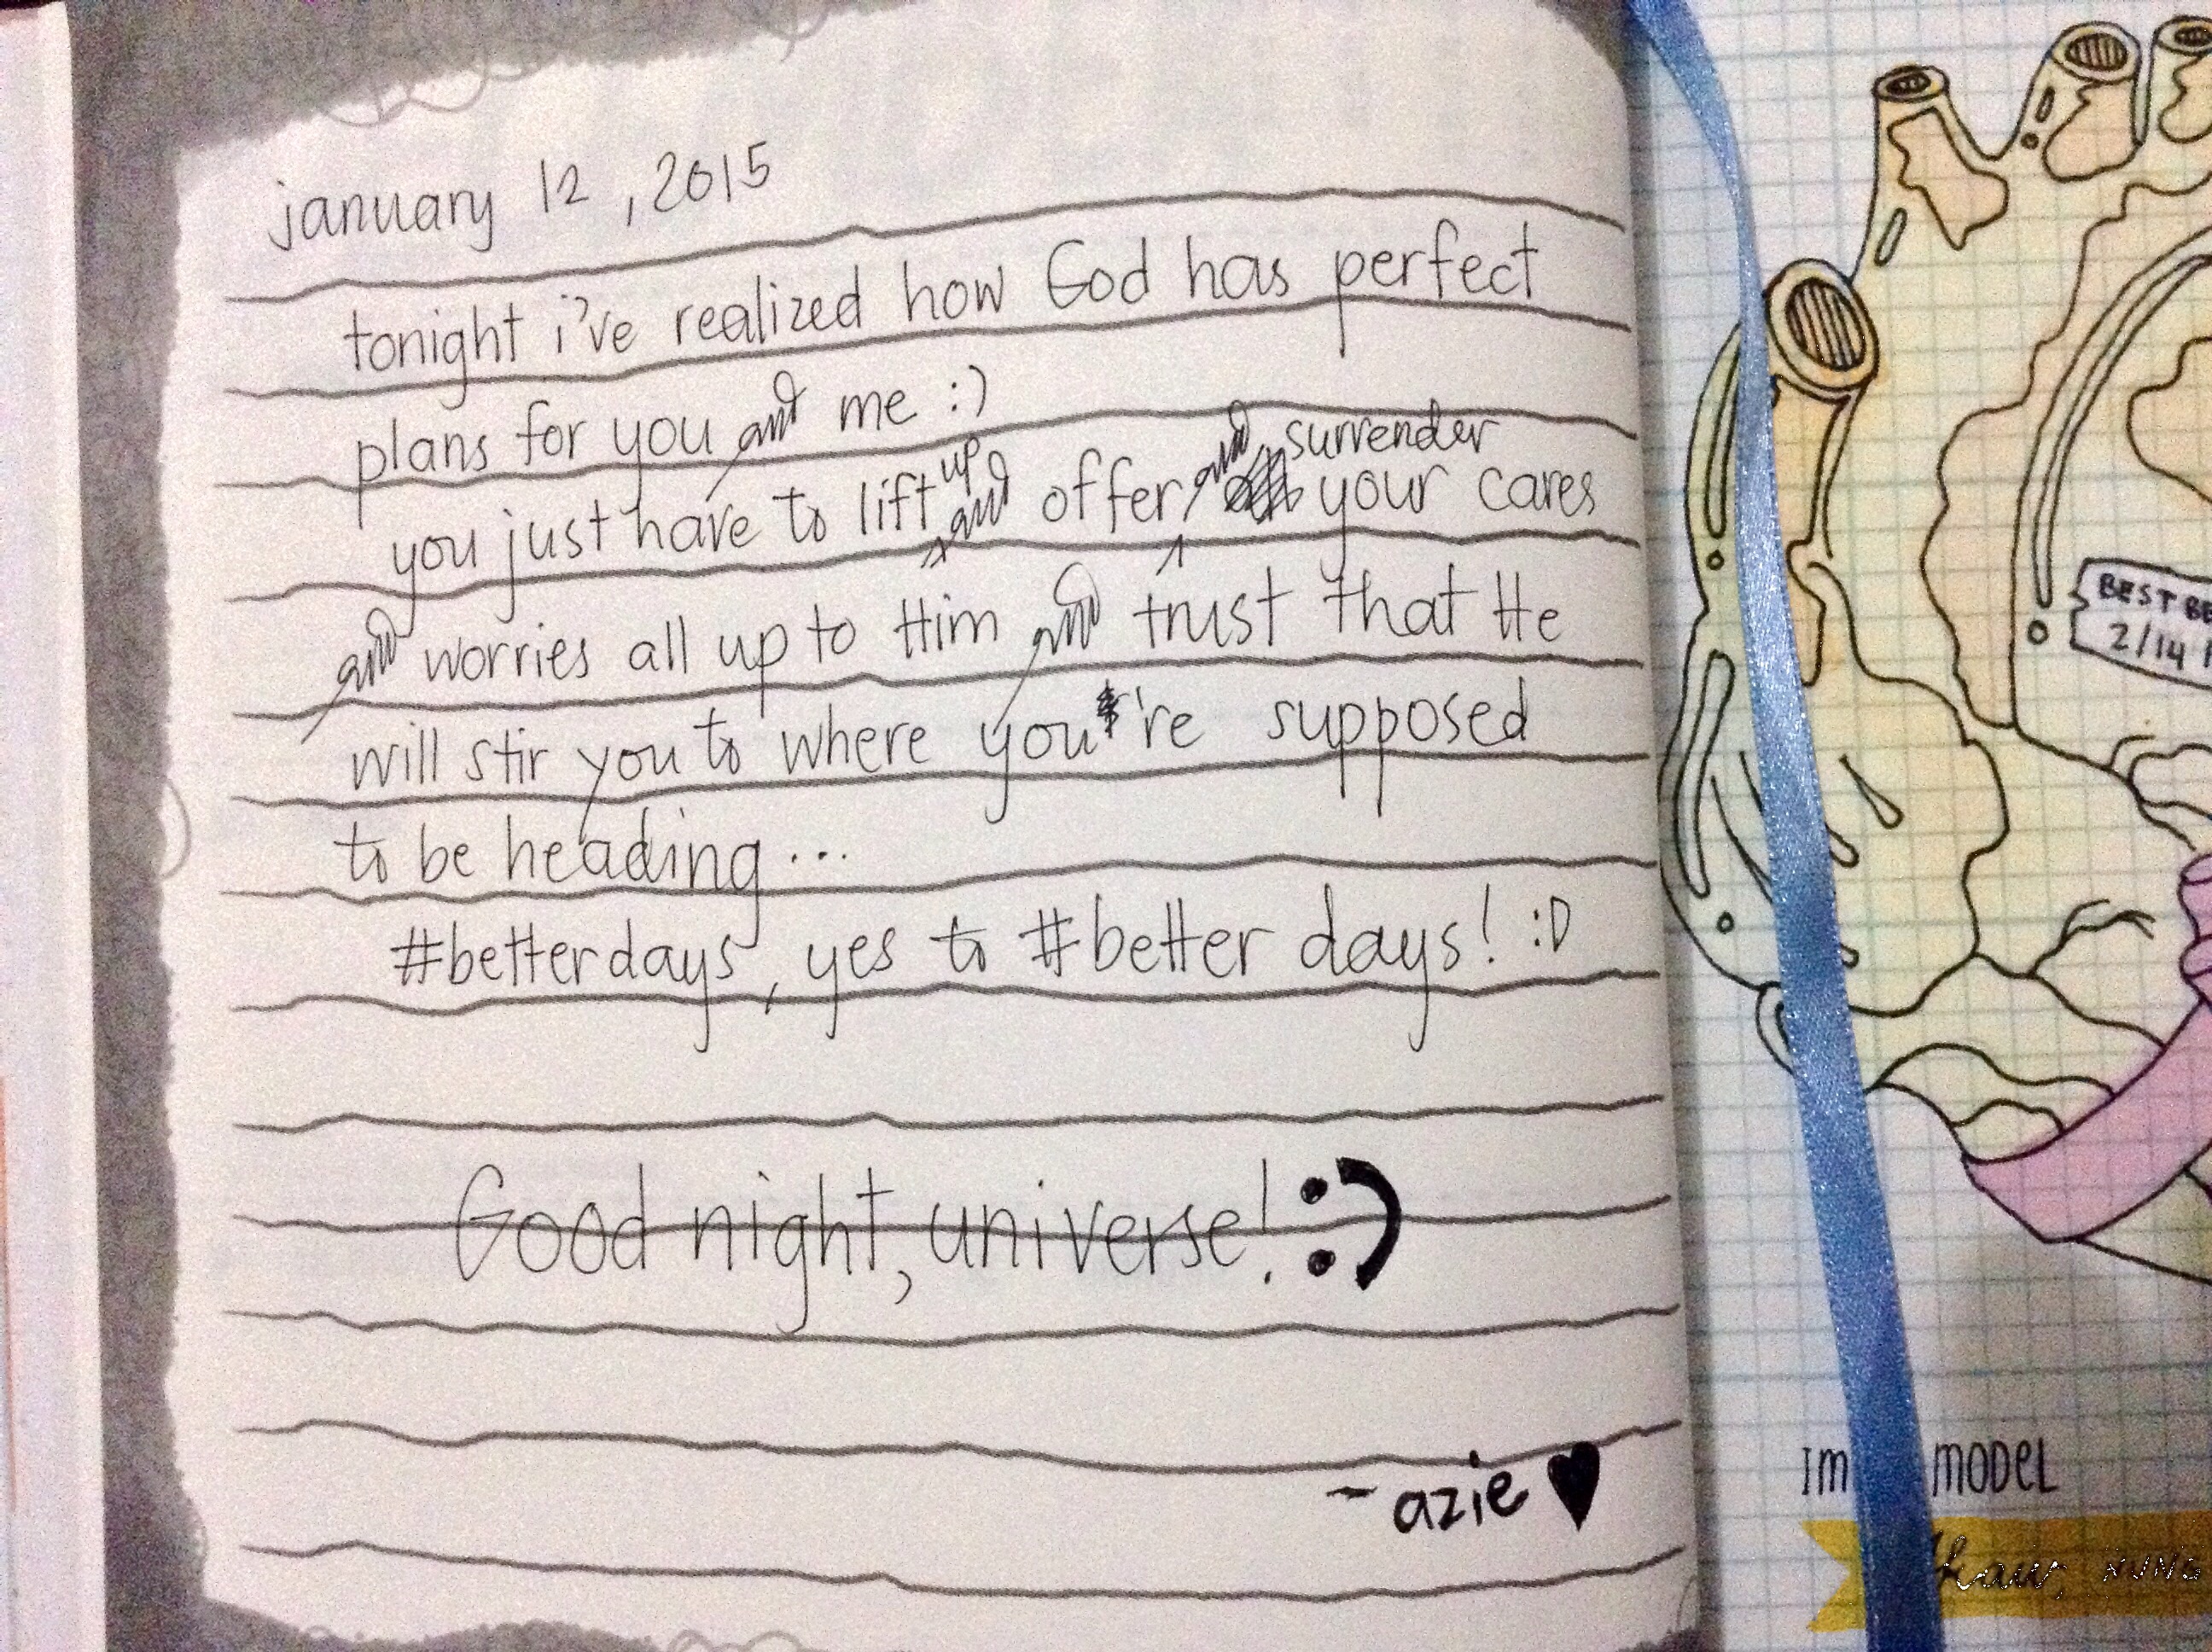 january 12, 2015
tonight i've realized how God has perfect
plans for you and me :)
you just have to lift up and offer, and surrender your cares
and worries all up to Him and trust that He
will stir you to where you're supposed
to be heading...
#betterdays, yes to #better days! :D
Good night, universe! :)
~ azie ♥
BEST BE
2/14
IM MODEL
ikaw, KUNG